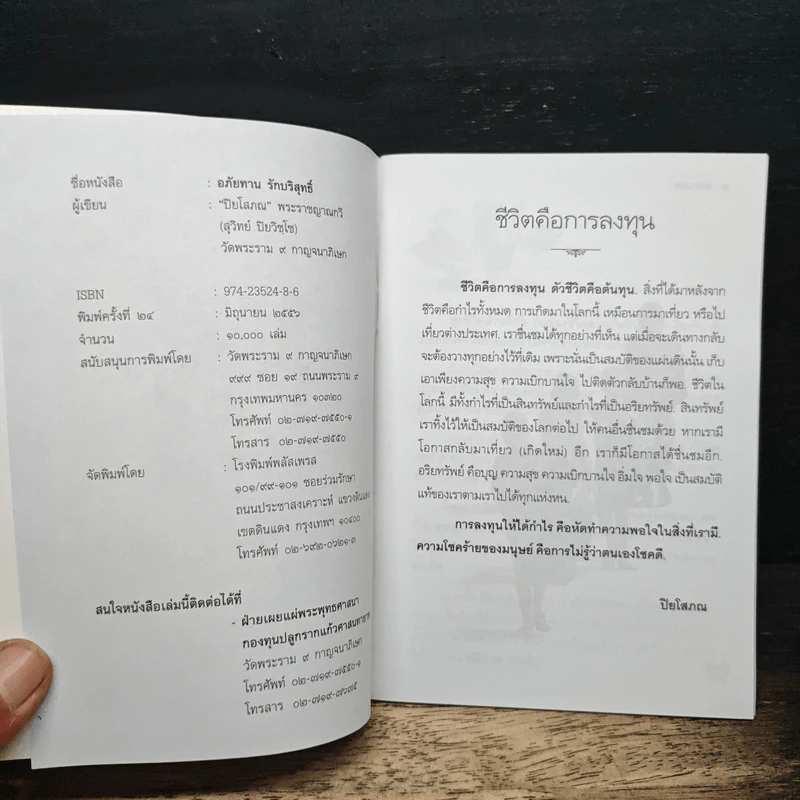 ชื่อหนังสือ : อภัยทาน รักบริสุทธิ์
ผู้เขียน : “ปิยโสภณ” พระราชญาณกวี
(สุวิทย์ ปิยวิชฺโช)
วัดพระราม ๙ กาญจนาภิเษก
ISBN : 974-23524-8-6
พิมพ์ครั้งที่ ๒๔ : มิถุนายน ๒๕๕๖
จำนวน : ๑๐,๐๐๐ เล่ม
สนับสนุนการพิมพ์โดย : วัดพระราม ๙ กาญจนาภิเษก
๙๙๙ ซอย ๑๙ ถนนพระราม ๙
กรุงเทพมหานคร ๑๐๓๒๐
โทรศัพท์ ๐๒-๗๑๙-๗๕๕๐-๑
โทรสาร ๐๒-๗๑๙-๗๕๕๐
จัดพิมพ์โดย : โรงพิมพ์พลัสเพรส
๑๐๑/๙๙-๑๐๑ ซอยร่วมรักษา
ถนนประชาสงเคราะห์ แขวงดินแดง
เขตดินแดง กรุงเทพฯ ๑๐๔๐๐
โทรศัพท์ ๐๒-๖๙๒-๐๖๒๑-๓
สนใจหนังสือเล่มนี้ติดต่อได้ที่
- ฝ่ายเผยแผ่พระพุทธศาสนา
กองทุนปลูกรากแก้วศาสนทายาท
วัดพระราม ๙ กาญจนาภิเษก
โทรศัพท์ ๐๒-๗๑๙-๗๕๕๐-๑
โทรสาร ๐๒-๗๑๙-๗๖๗๕
ชีวิตคือการลงทุน
ชีวิตคือการลงทุน ตัวชีวิตคือต้นทุน. สิ่งที่ได้มาหลังจาก
ชีวิตคือกำไรทั้งหมด การเกิดมาในโลกนี้ เหมือนการมาเที่ยว หรือไป
เที่ยวต่างประเทศ. เราชื่นชมได้ทุกอย่างที่เห็น แต่เมื่อจะเดินทางกลับ
จะต้องวางทุกอย่างไว้ที่เดิม เพราะนั่นเป็นสมบัติของแผ่นดินนั้น เก็บ
เอาเพียงความสุข ความเบิกบานใจ ไปติดตัวกลับบ้านก็พอ. ชีวิตใน
โลกนี้ มีทั้งกำไรที่เป็นสินทรัพย์และกำไรที่เป็นอริยทรัพย์. สินทรัพย์
เราทิ้งไว้ให้เป็นสมบัติของโลกต่อไป ให้คนอื่นชื่นชมด้วย หากเรามี
โอกาสกลับมาเที่ยว (เกิดใหม่) อีก เราก็มีโอกาสได้ชื่นชมอีก.
อริยทรัพย์ คือบุญ ความสุข ความเบิกบานใจ อิ่มใจ พอใจ เป็นสมบัติ
แท้ของเราตามเราไปได้ทุกแห่งหน.
การลงทุนให้ได้กำไร คือหัดทำความพอใจในสิ่งที่เรามี.
ความโชคร้ายของมนุษย์ คือการไม่รู้ว่าตนเองโชคดี.
ปิยโสภณ